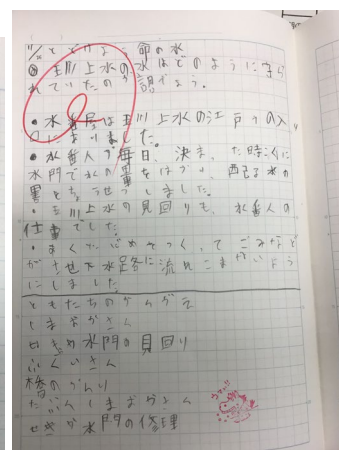 11/ とどけよう命の水
◎玉川上水の水はどのように守ら
れていたのか調べよう。
・水番屋は玉川上水の江戸の入
口にありました。
・水番人が毎日、決まった時こくに
水門で水の量をはかり、配る水の
量をちょうせつしました。
・玉川上水の見回りも、水番人の
仕事でした。
・さくを つくって ごみなど
が 水路に流れこまないよう
にしました
ともだちのかんがえ
しまおかさん
水門の見回り
ふくいさん
橋のかんり
たぶんしまおかさん
せきや水門の修理